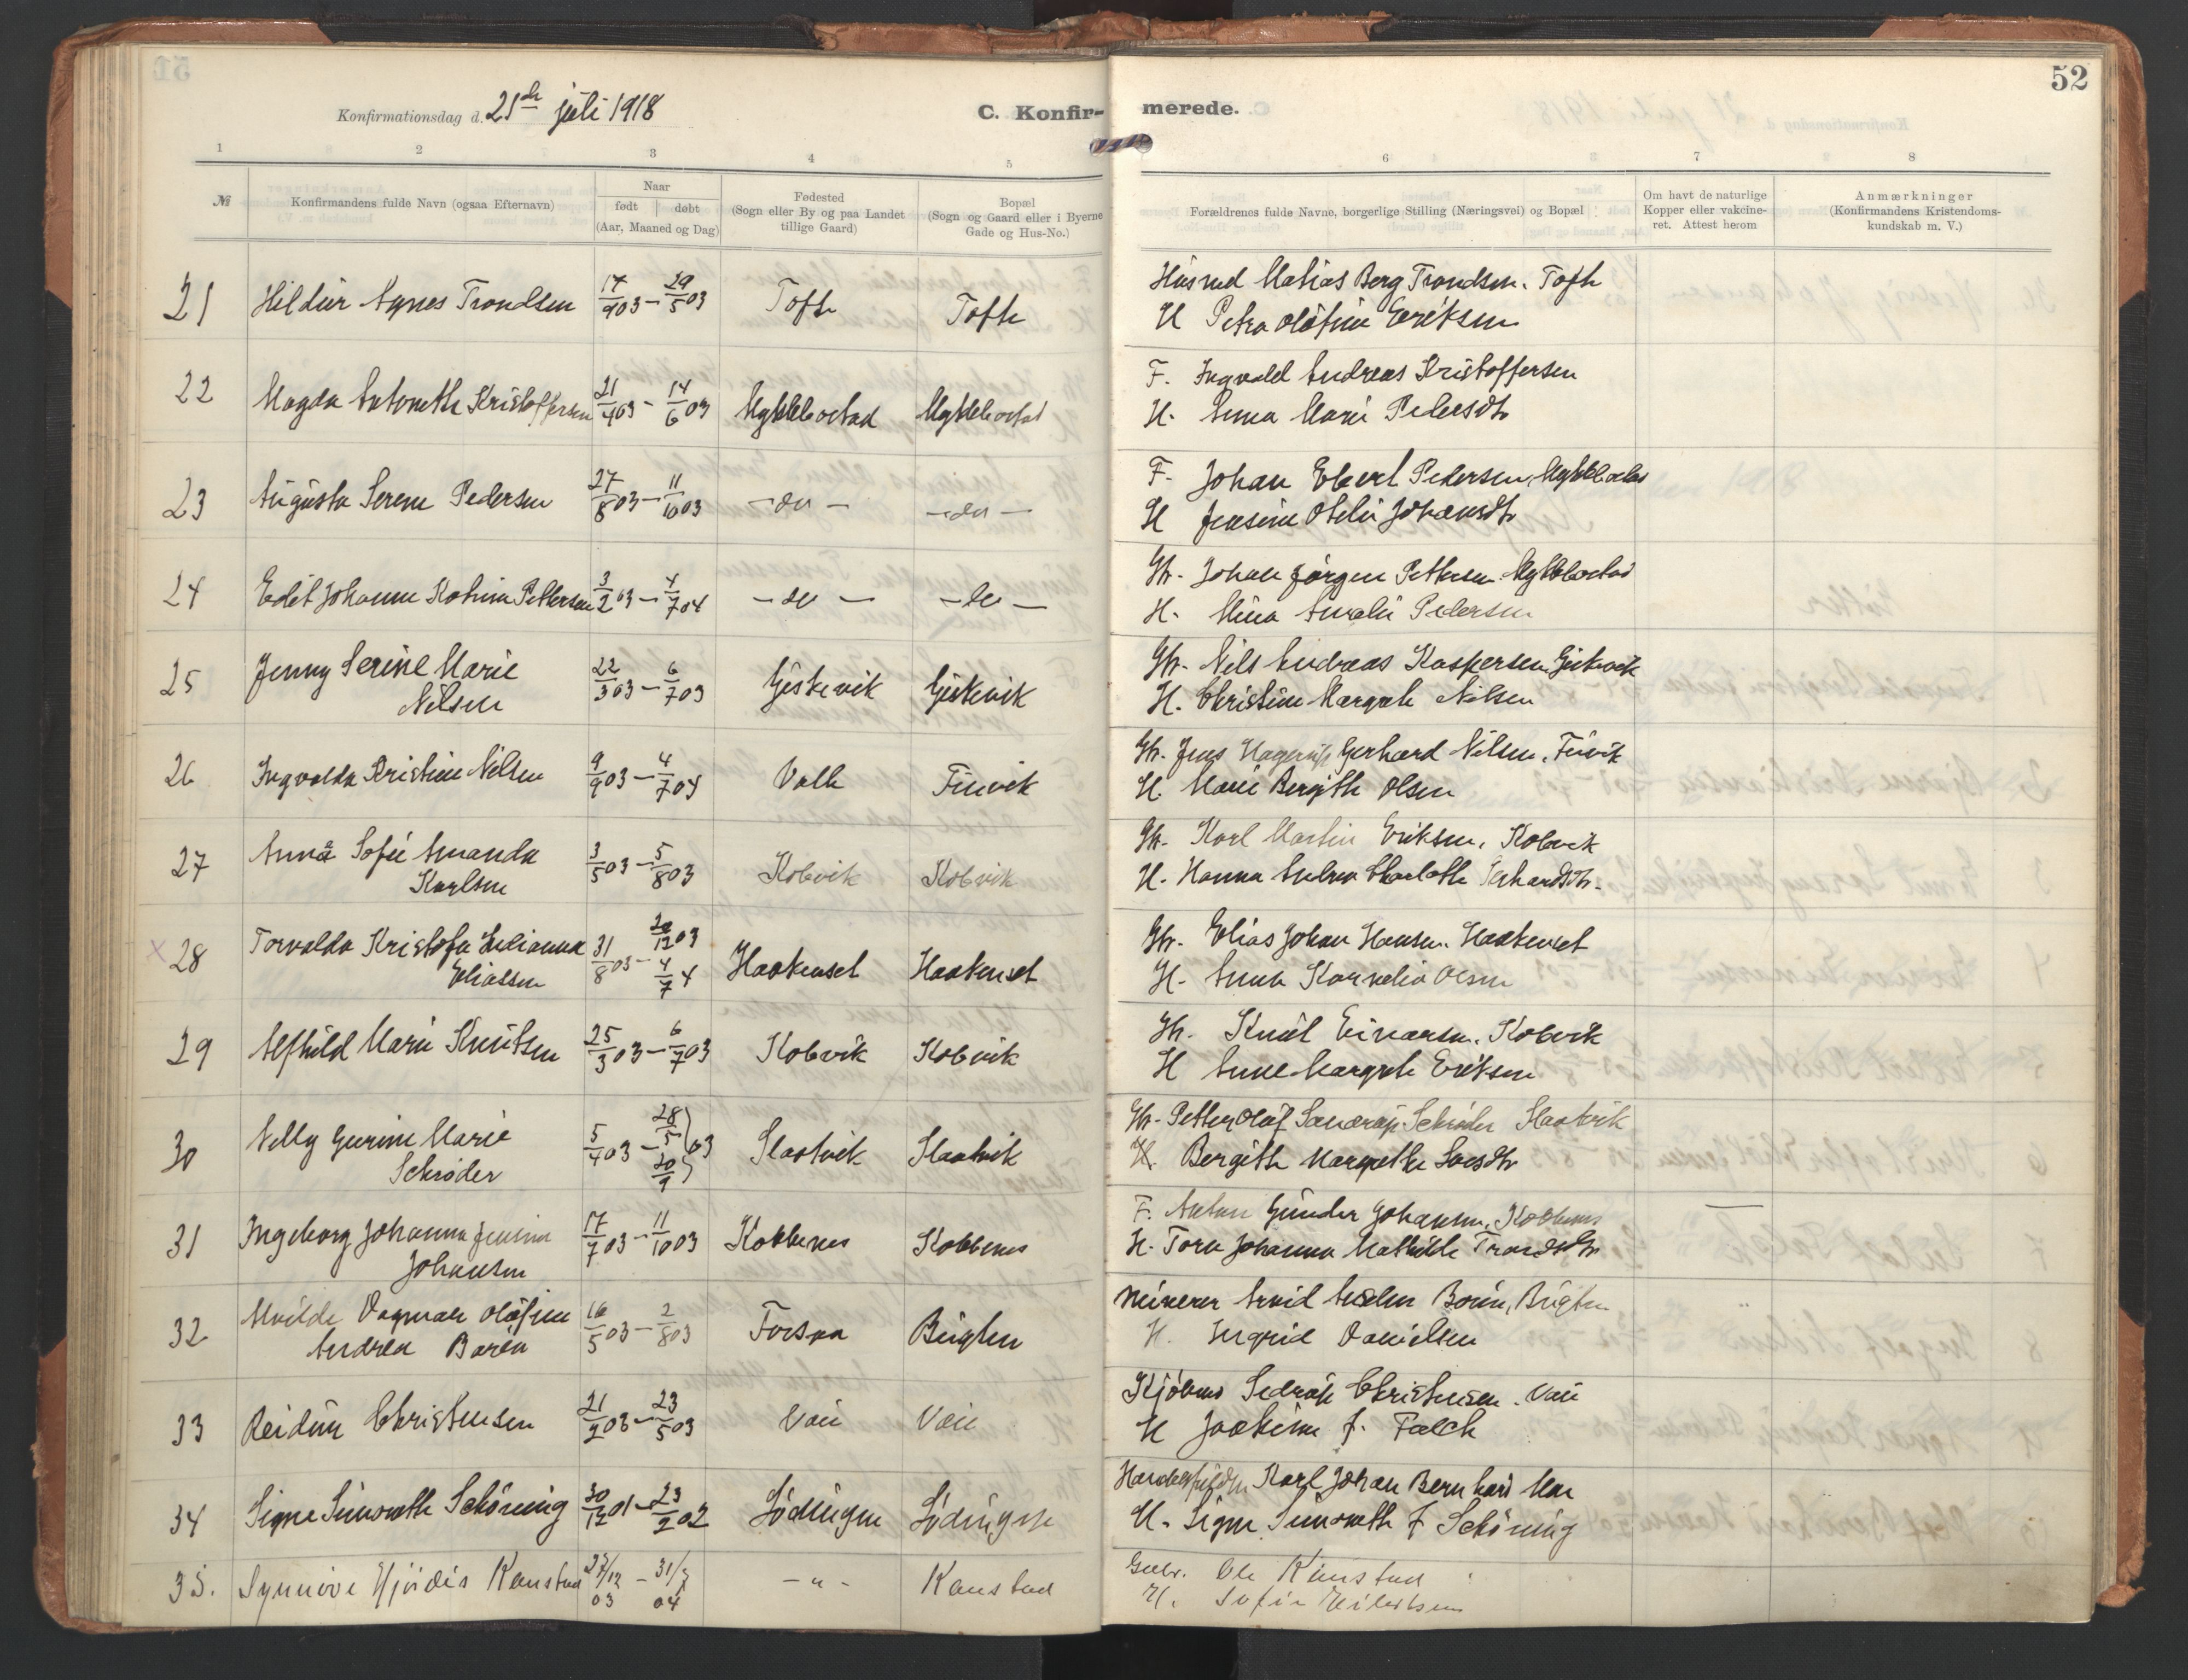 52
Konfirmationsdag d. 21de juli 1918
C. Konfirmerede.
1 2 3 4 5 6 7 8
№
Konfirmandens fulde Navn (ogsaa Efternavn)
Naar
født | døbt
(Aar, Maaned og Dag)
Fødested
(Sogn eller By og paa Landet
tillige Gaard)
Bopæl
(Sogn og Gaard eller i Byerne
Gade og Hus-No.)
Forældrenes fulde Navne, borgerlige Stilling (Næringsvei) og Bopæl
Om havt de naturlige
Kopper eller vakcine-
ret. Attest herom
Anmærkninger
(Konfirmandens Kristendoms-
kundskab m. V.)
21 Hildur Agnes Trondsen 17/4 03 — 29/5 03 Tofte Tofte
Husmd Matias Berg Trondsen. Tofte
H Petra Olufine Eriksen
22 Magda Antonette Kristoffersen 21/4 03 - 14/6 03 Myklebostad Myklebostad
F. Ingvald Andreas Kristoffersen
H. Anna Marie Pedersdtr
23 Augusta Serene Pedersen 27/8 03 — 11/10 03 — do — — do —
F. Johan Ebert Pedersen, Myklebostad
H Jensine Otelie Johansdtr
24 Edit Johanne Katrine Pettersen 3/2 03 — 4/7 04 — do — — do —
Gb. Johan Jørgen Pettersen Myklebostad
H. Mina Amalie Pedersen
25 Jenny Serine Marie
Nilsen 22/3 03 — 6/7 03 Geitevik Geitevik
Gb. Nils Andreas Kaspersen Geitevik
H. Christine Margrete Nilsen
26 Ingvalda Kristine Nilsen 9/9 03 — 4/7 04 Valle Finvik
Gb. Jens Hagerup Gerhard Nilsen, Finvik
H. Marie Bergitte Olsen
27 Anna Sofie Amanda
Karlsen 3/5 03 — 5/8 03 Kobvik Kobvik
Gb. Karl Martin Eriksen, Kobvik
H. Hanna Andrea Charlotte
x 28 Torvalda Kristofa Julianna
Eliassen 31/8 03 — 20/12 03
4/7 4 Haakenset Haakenset
Gb. Elias Johan Hansen. Haakenset
H. Anna Kornelia Olsen
29 Alfhild Marie Knutsen 25/3 03 — 6/7 03 Kobvik Kobvik
Gb. Knut Einarsen. Kobvik
H Anne Margrete Eriksen
30 Nelly Gurine Marie
Schrøder 5/4 03 — 28/5 20/9 } 03 Slaatvik Slaatvik
Gb. Petter Oluf Schrøder Slaatvik
H. Bergitte Margrethe Larsdtr
31 Ingeborg Johanna Jensine
Johansen 17/7 03 — 11/10 03 Kobbenes Kobbenes
F. Anton Gunder Johansen, Kobbenes
H. Tora Johanna Mathilde Trondsdtr
32 Dagmar Olufine
Andrea Boren 16/5 03 — 2/8 03 Forsaa Bugten
Minerer Arvid Boren, Bugten
H. Ingrid Danielsen
33 Reidun Christensen 21/2 03 — 23/5 03
Kjøbmd Sedrak Christensen.
H Joakine f. Falch
34 Signe Schøning 30/12 01 — 23/2 02 Lødingen Lødingen
Karl Johan Bernhard
H. Signe f Schøning
35. Synnøve Hjørdis Kanstad 27/12 03 — 31/7 04 — " — Kanstad
Gbr. Ole Kanstad
H. Sofie